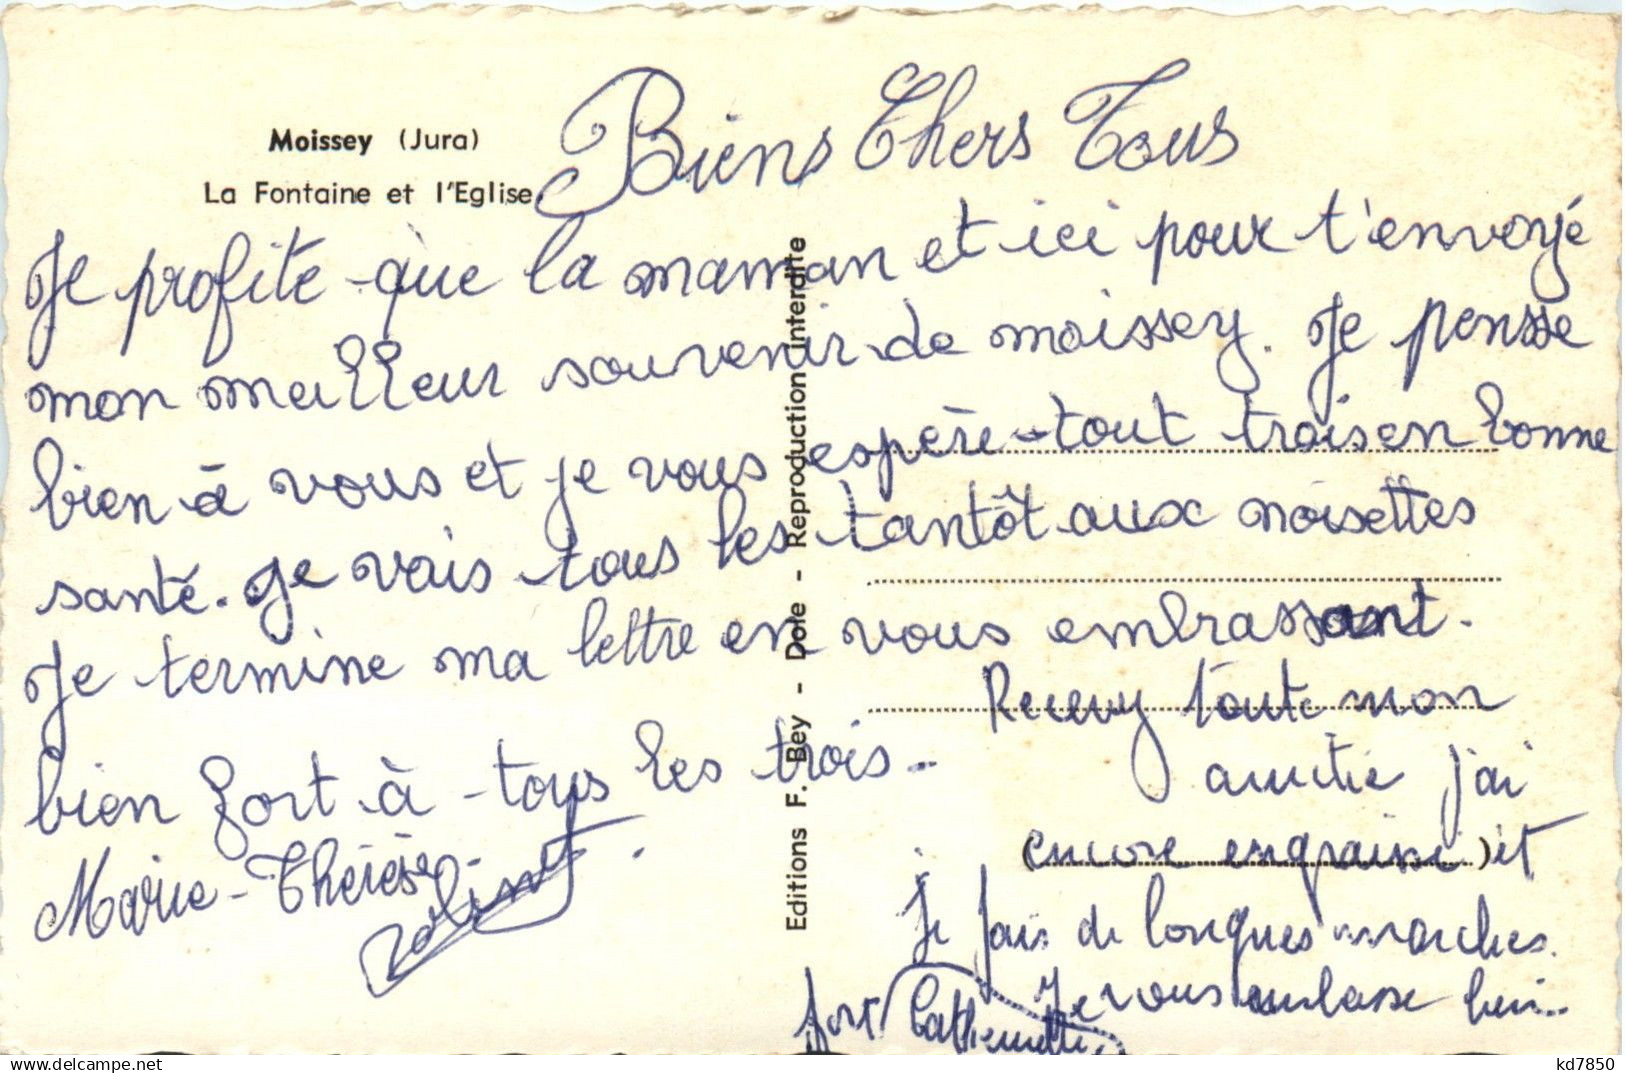 Moissey (Jura)
La Fontaine et l'Eglise.
Biens Chers Tous
Je profite que la maman et ici pour t'envoyé
mon meilleur souvenir de moissey. Je pensse
bien à vous et je vous espère tout trois en bonne
santé. Je vais tous les tantôt aux noisettes
Je termine ma lettre en vous embrassant.
bien fort à tous les trois.
Marie-Thérèse.
Recevez toute mon
amitié j'ai
(encore engraissé) et
Je fais de longues marches.
Je vous embrasse bien
fort Catherinette.
Editions F. Bey - Dole - Reproduction interdite
kd7850